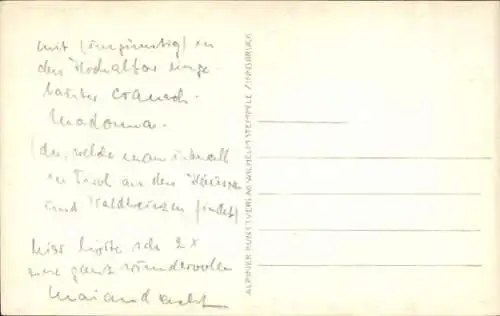 mit (ungünstig) in
den Hochaltar einge-
bauter Cranach-
Madonna.
(die, welche man überall
in Tirol an den Häusern
und Waldheinzen findet)
hier hörte ich 2x
eine ganz wundervolle
Maiandacht
ALPINER KUNSTVERLAG WILHELM STEMPFLE / INNSBRUCK